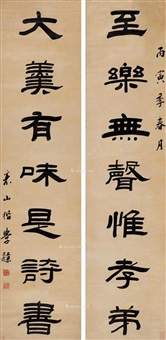 丙寅季春月
至樂無聲惟孝弟
大羹有味是詩書